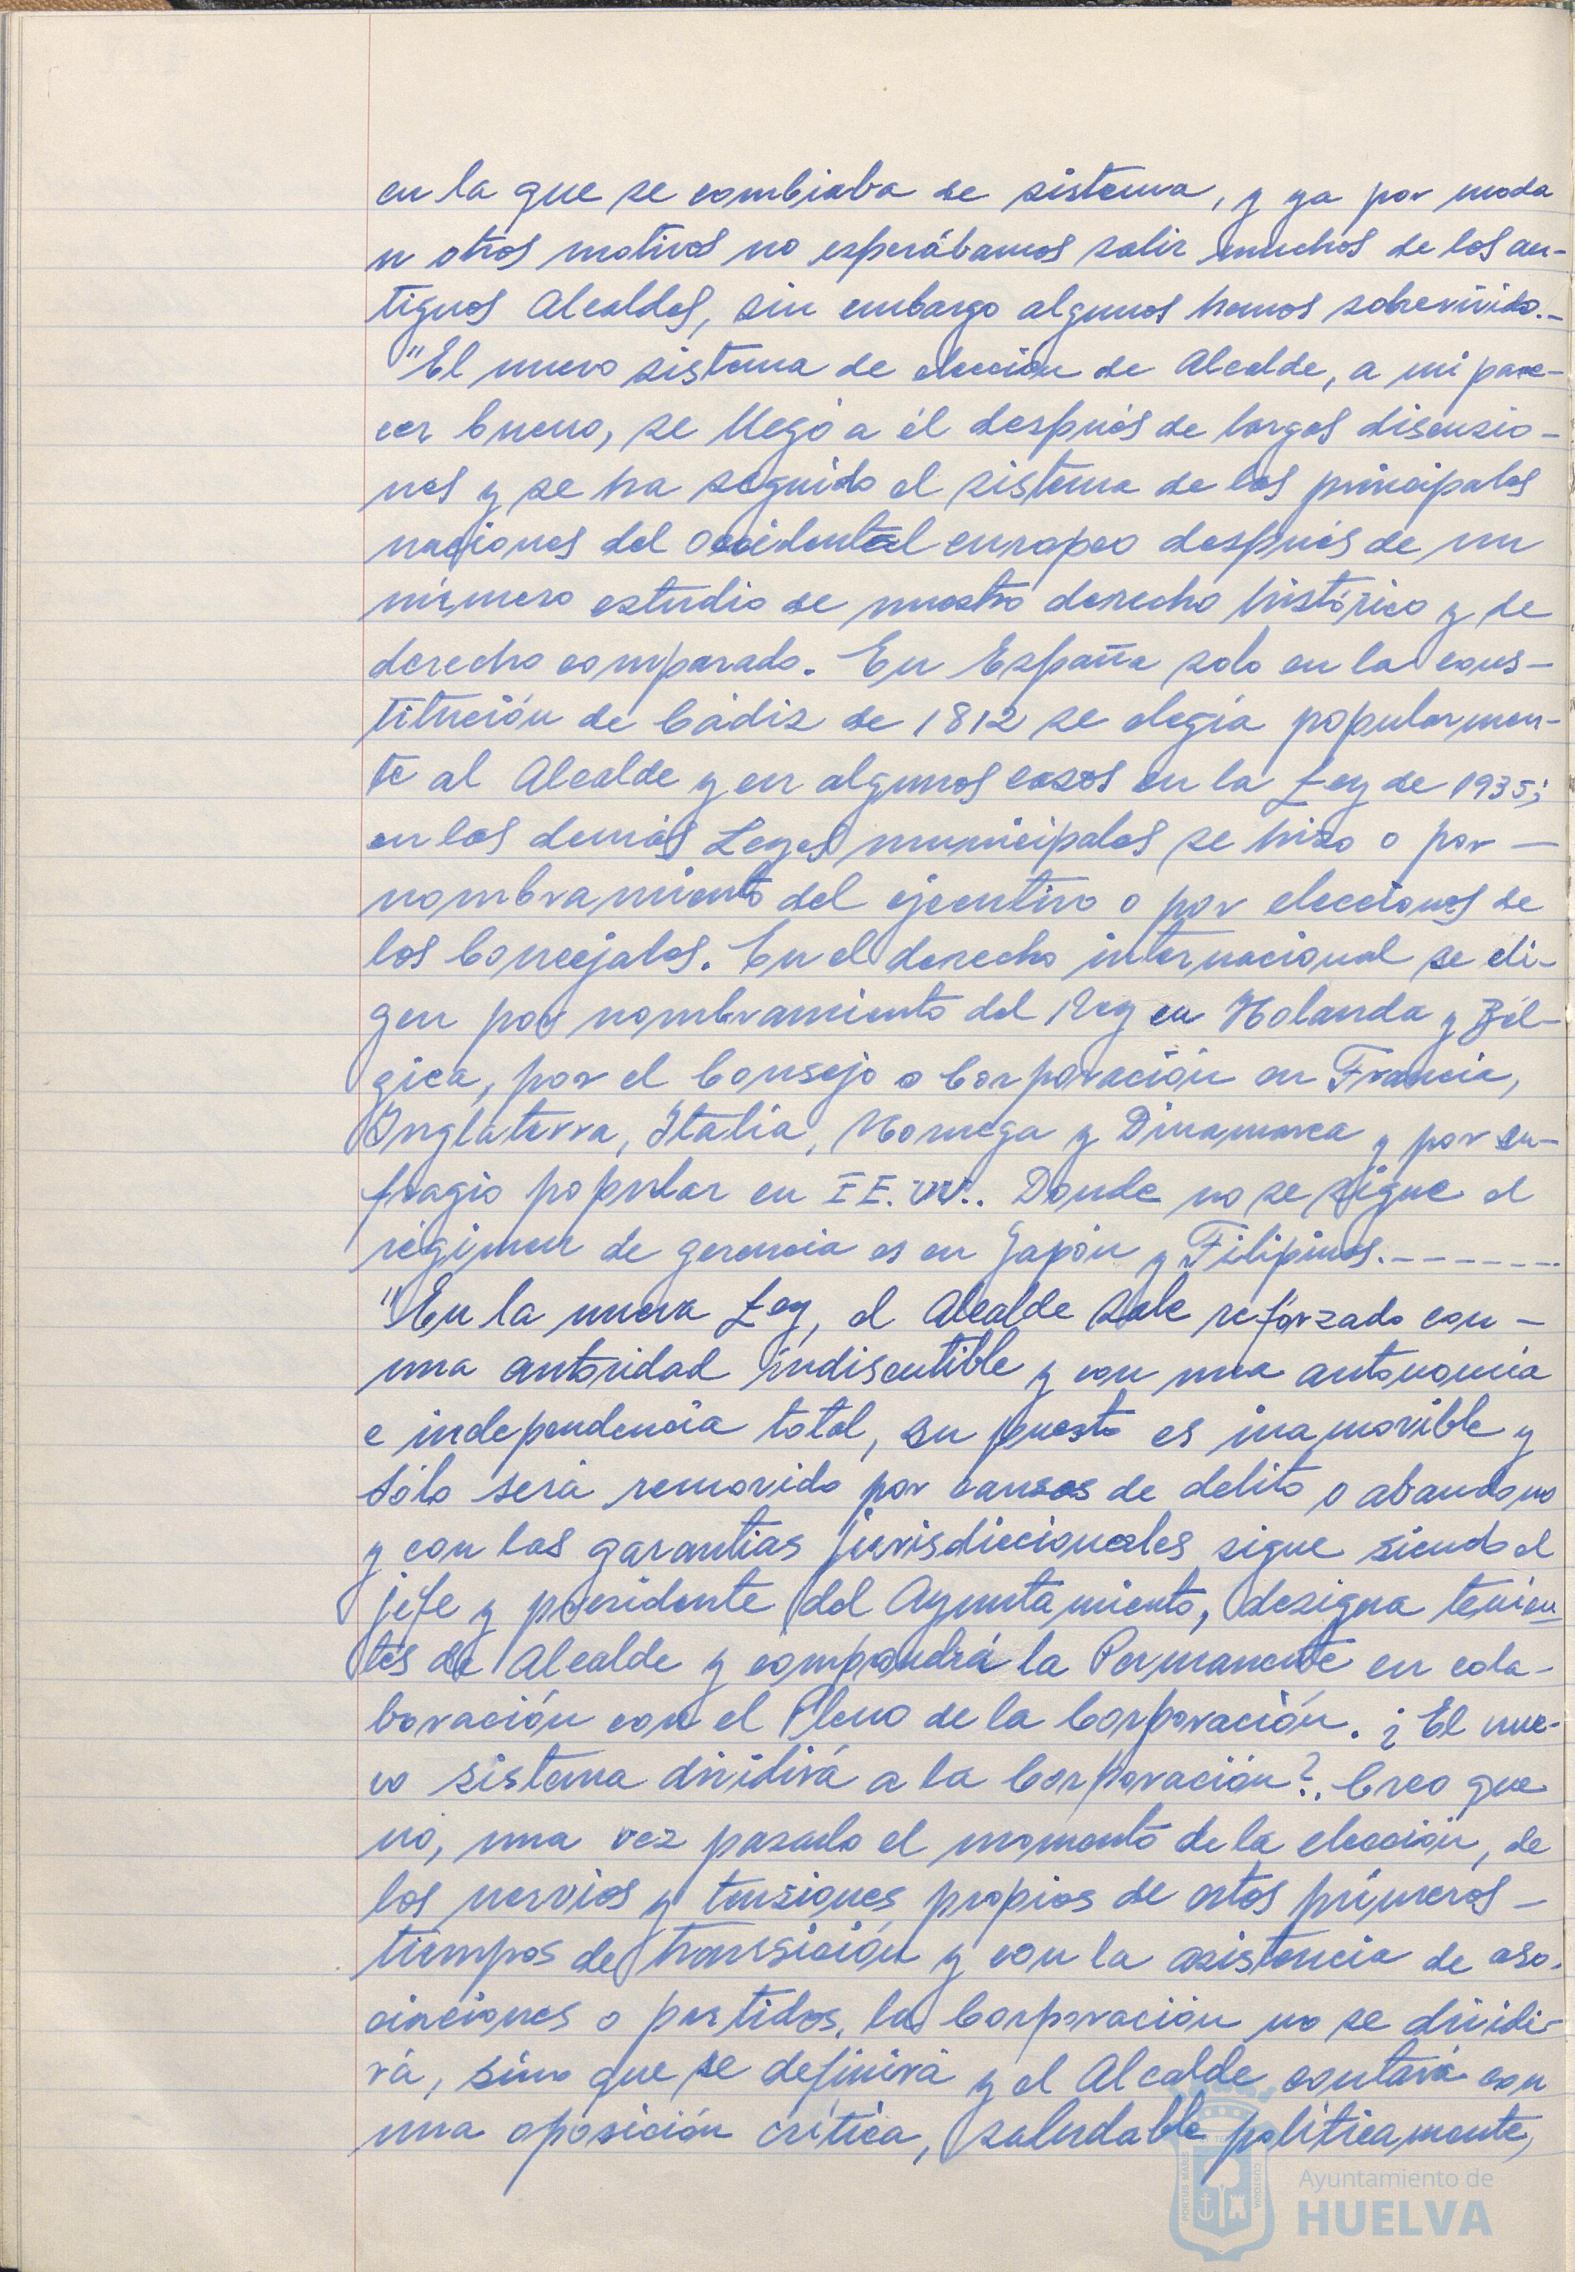 en la que se cambiaba de sistema, y ya por moda
u otros motivos no esperábamos salir muchos de los an-
tiguos Alcaldes, sin embargo algunos hemos sobrevivido.-
"El nuevo sistema de elección de Alcalde, a mi pare-
cer bueno, se llegó a él después de largas discusio-
nes y se ha seguido el sistema de las principales
naciones del occidental europeo después de un
número estudio de nuestro derecho histórico y de
derecho comparado. En España solo en la cons-
titución de Cádiz de 1812 se elegía popularmen-
te al Alcalde y en algunos casos en la Ley de 1935;
en las demás Leyes municipales se hizo o por -
nombramiento del ejecutivo o por elecciones de
los Concejales. En el derecho internacional se eli-
gen por nombramiento del Rey en Holanda y Bél-
gica, por el Consejo o Corporación en Francia,
Inglaterra, Italia, Noruega y Dinamarca y por su-
fragio popular en EE.UU.. Donde no se sigue el
régimen de gerencia es en Japón y Filipinas.-------
"En la nueva Ley, el Alcalde sale reforzado con -
una autoridad indiscutible y con una autonomía
e independencia total, su puesto es inamovible y
sólo será removido por causas de delito o abandono
y con las garantías jurisdiccionales sigue siendo el
jefe y presidente del Ayuntamiento, designa tenien-
tes de Alcalde y compondrá la Permanente en cola-
boración con el Pleno de la Corporación. ¿El nue-
vo sistema dividirá a la Corporación?. Creo que
no, una vez pasado el momento de la elección, de
los nervios y tensiones propios de estos primeros -
tiempos de transsición y con la asistencia de aso-
ciaciones o partidos, la Corporación no se dividi-
rá, sino que se definirá y el Alcalde contará con
una oposición crítica, saludable políticamente,
Ayuntamiento de
HUELVA